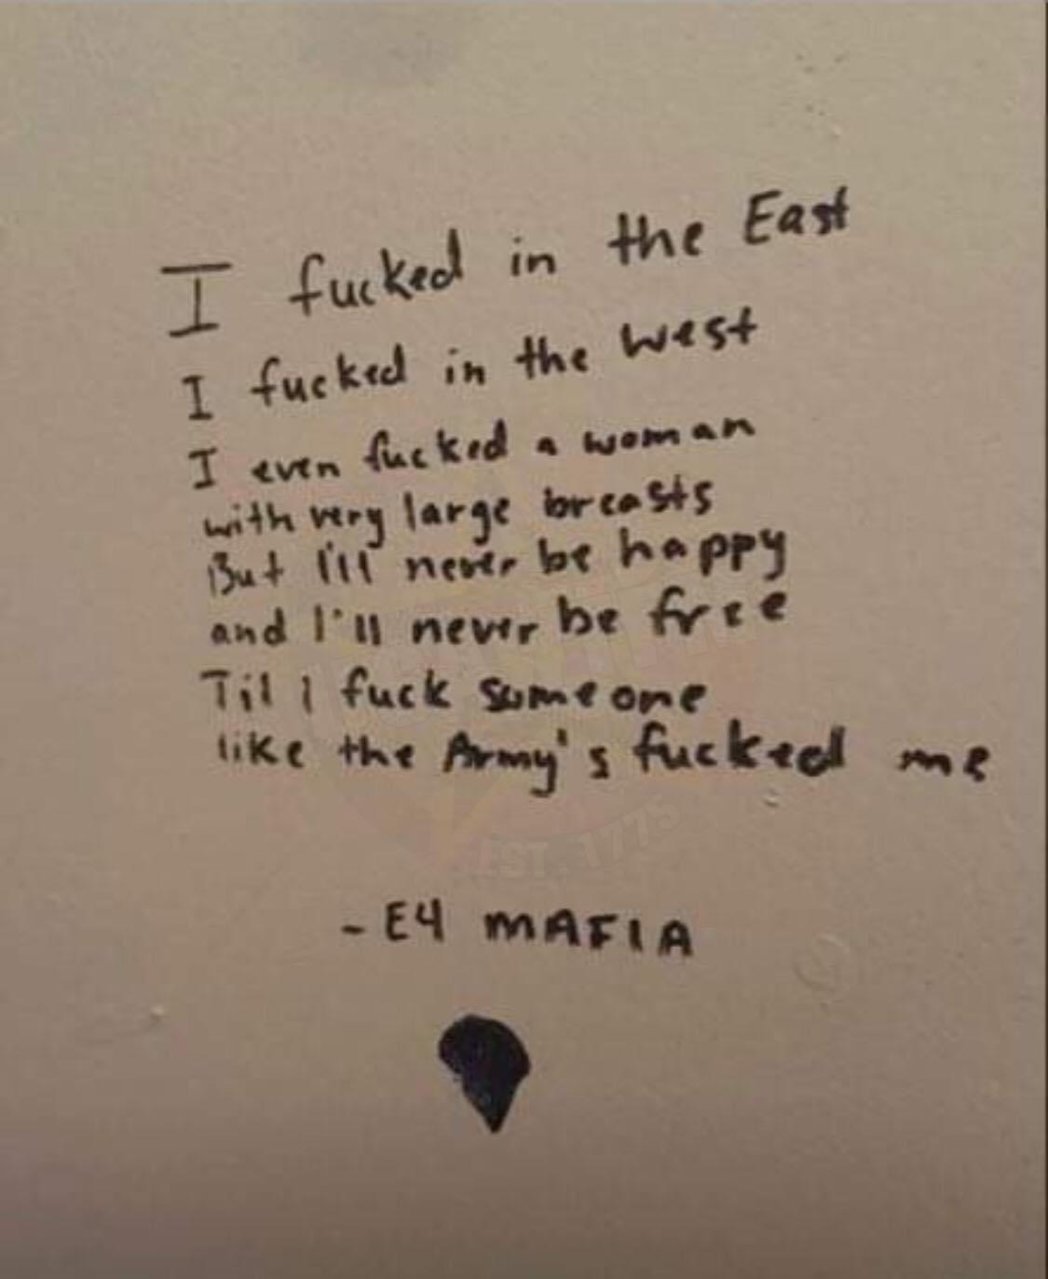 I fucked in the East
I fucked in the west
I even fucked a woman
with very large breasts
But I'll never be happy
and I'll never be free
Til I fuck someone
like the Army's fucked me
EST. 1775
- E4 MAFIA